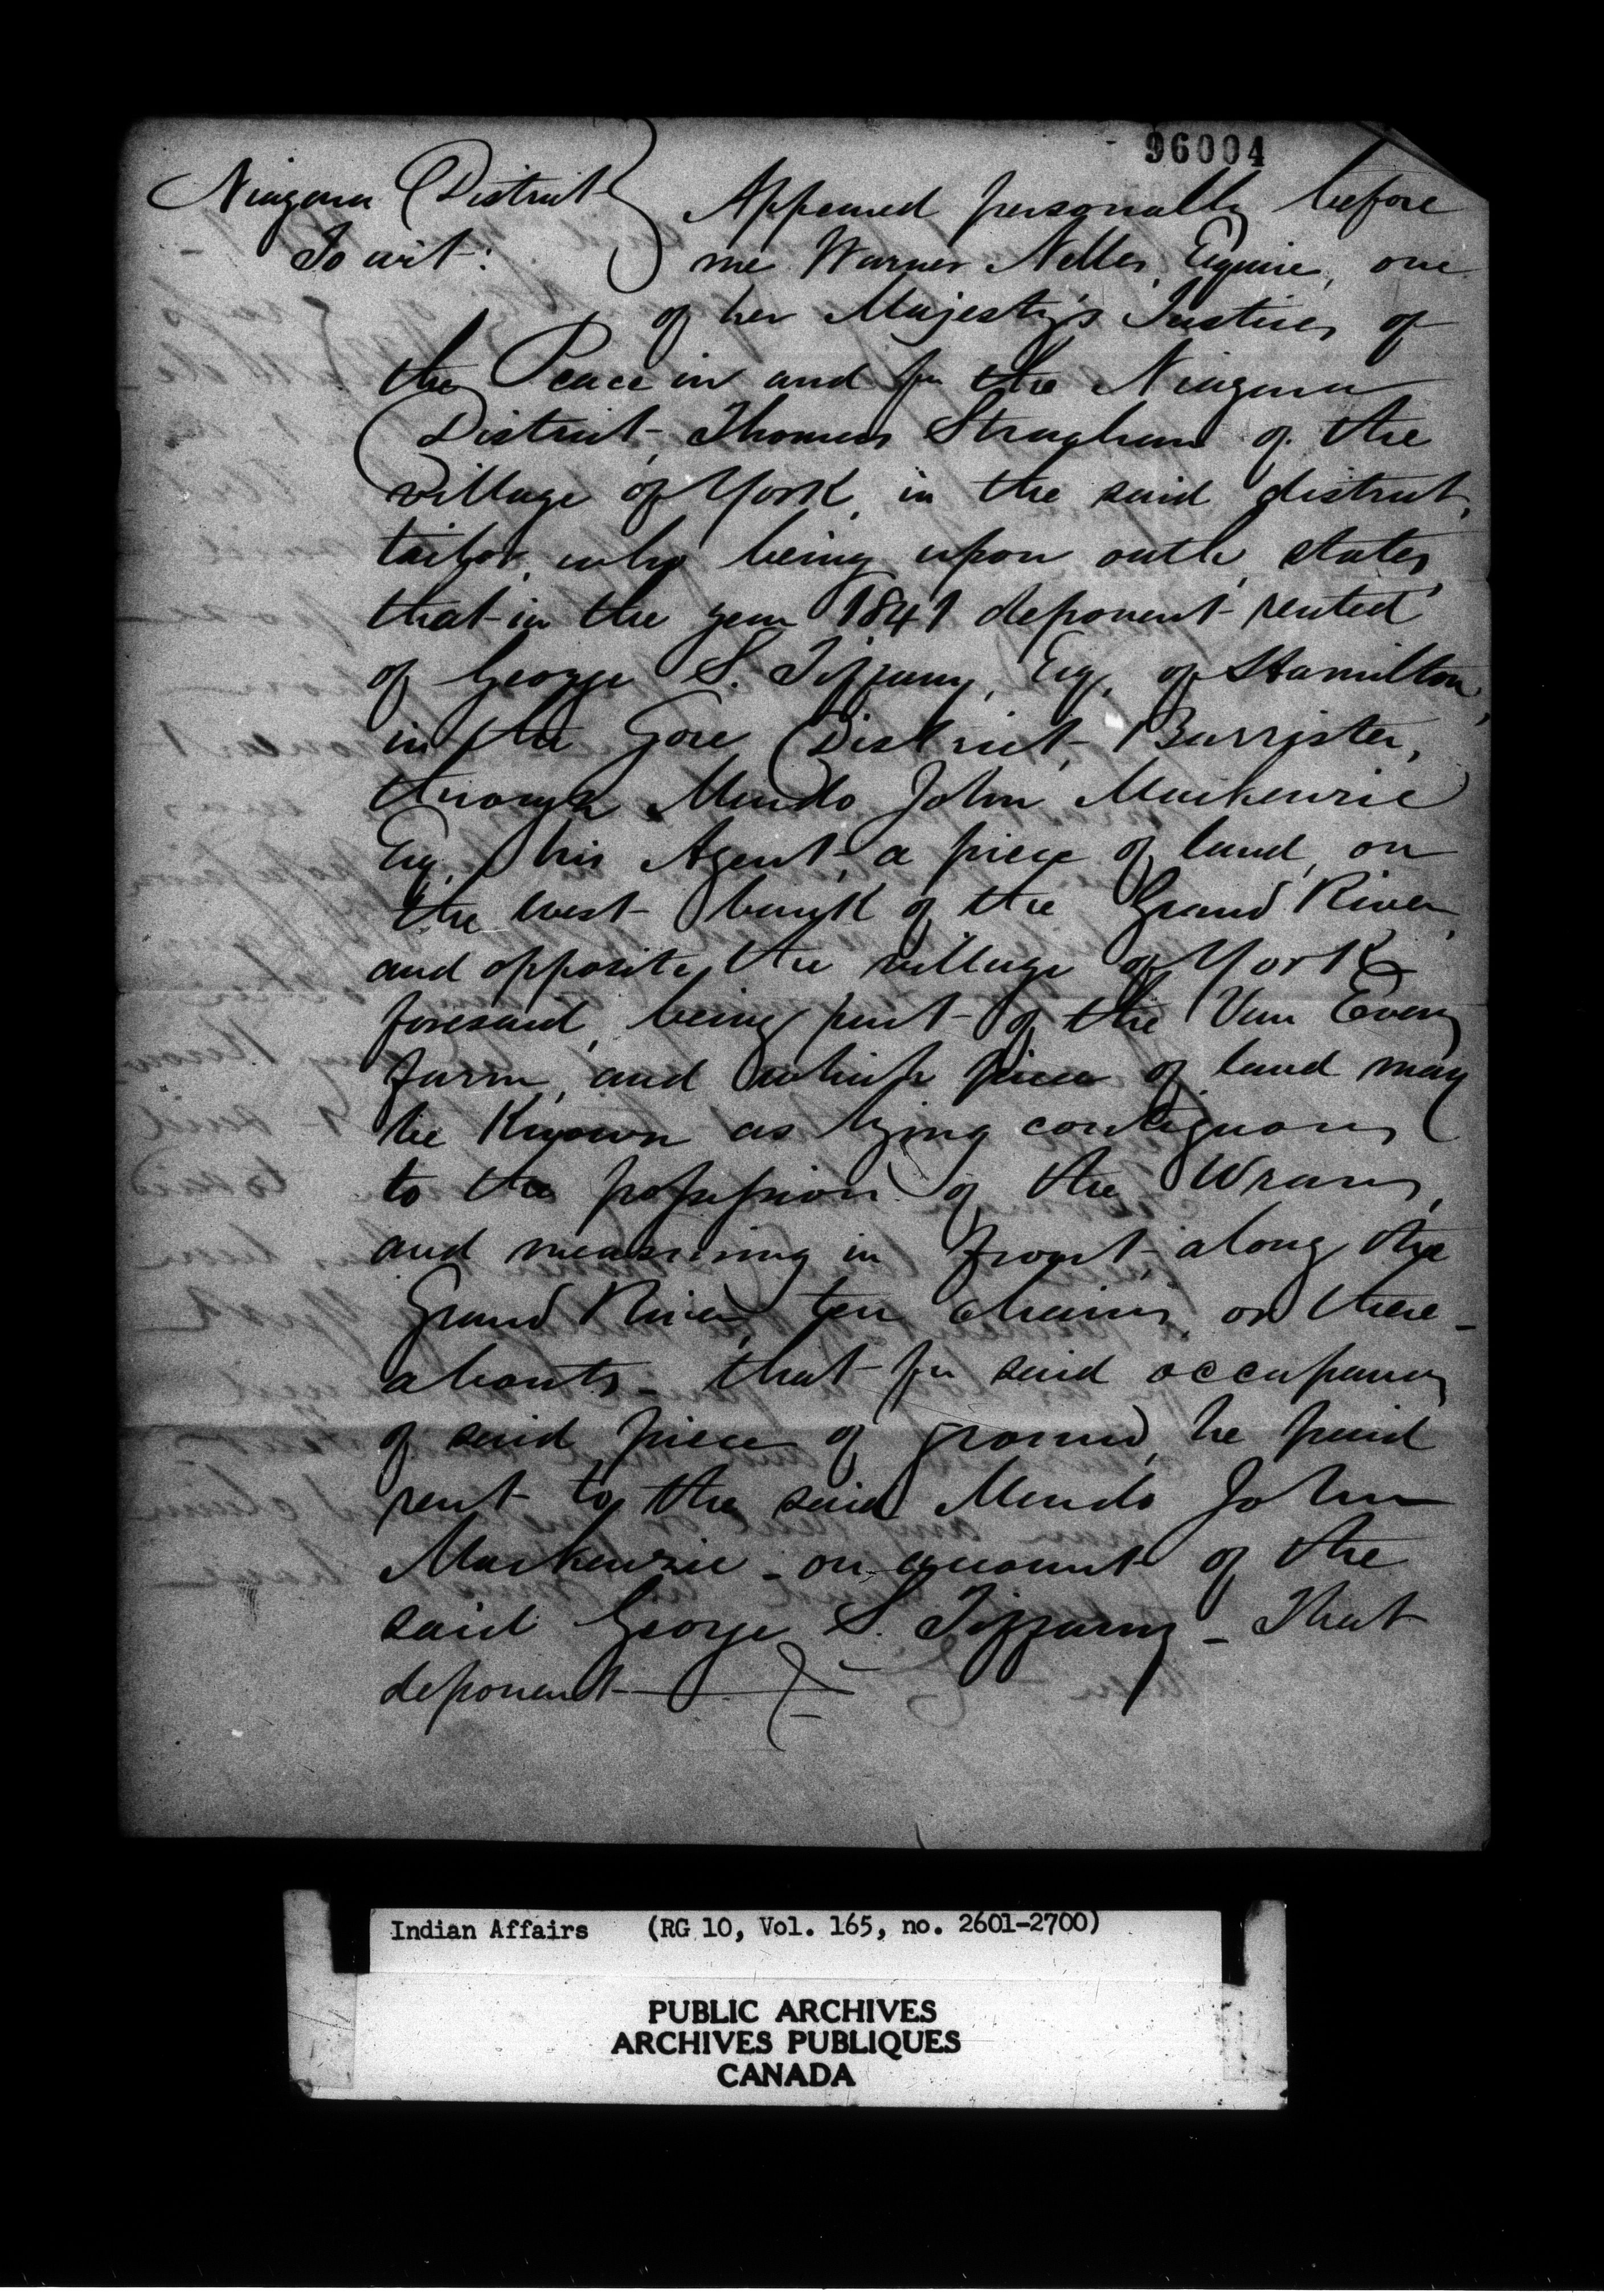 96004
Niagara District Appeared personally before
To wit: me Warner Nelles, Esquire, one
of her Majesty's Justices of
the Peace in and for the Niagara
District, Thomas Straghan of the
village of York, in the said district,
tailor, who being upon oath, states,
that in the year 1841 deponent rented
of George S. Tiffany, Esq, of Hamilton,
in the Gore District, Barrister,
through Mundo John Mackenzie
Esq, his Agent, a piece of land, on
the west bank of the Grand River,
and opposite the village of York
foresaid, being part of the Van Every
farm, and which piece of land may
be Known as lying contiguous
to the possession of the Wrans,
and measuring in front, along the
Grand River, ten chains, or there-
abouts - that for said occupancy
of said piece of ground, he paid
rent to the said Mundo John
Mackenzie - on account of the
said George S. Tiffany - That
deponent
Indian Affairs (RG 10, Vol. 165, no. 2601-2700)
PUBLIC ARCHIVES
ARCHIVES PUBLIQUES
CANADA